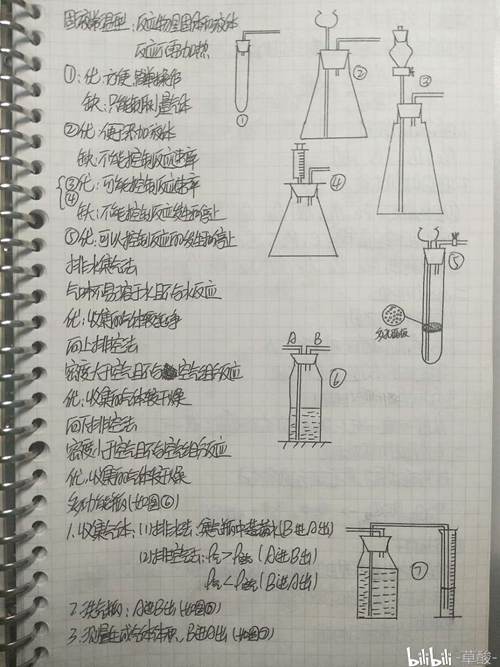 固液常温型：反应物是固体和液体
反应不需加热
①：优：方便，简单操作
缺：只能制取少量气体
②优：便于添加液体
缺：不能控制反应速率
③优：可能控制反应速率
④
缺：不能控制反应发生和停止
⑤优：可以控制反应的发生和停止
排水集气法
气体不易溶于水且不与水反应
优：收集的气体较纯净
向上排空法
密度大于空气且不与空气组分反应
优：收集的气体较干燥
向下排空法
密度小于空气且不与空气组分反应
优：收集的气体较干燥
多功能瓶(如图⑥)
1.收集气体：(1)排水法：集气瓶中装满水(B进A出)
(2)排空法：ρ气>ρ空气(A进B出)
ρ气<ρ空气(B进A出)
2.洗气物：A进B出(如图⑥)
3.测量生成气体体积，B进A出(如图⑦)
①
②
③
④
⑤
多孔隔板
A B
⑥
⑦
bilibili -草酸-